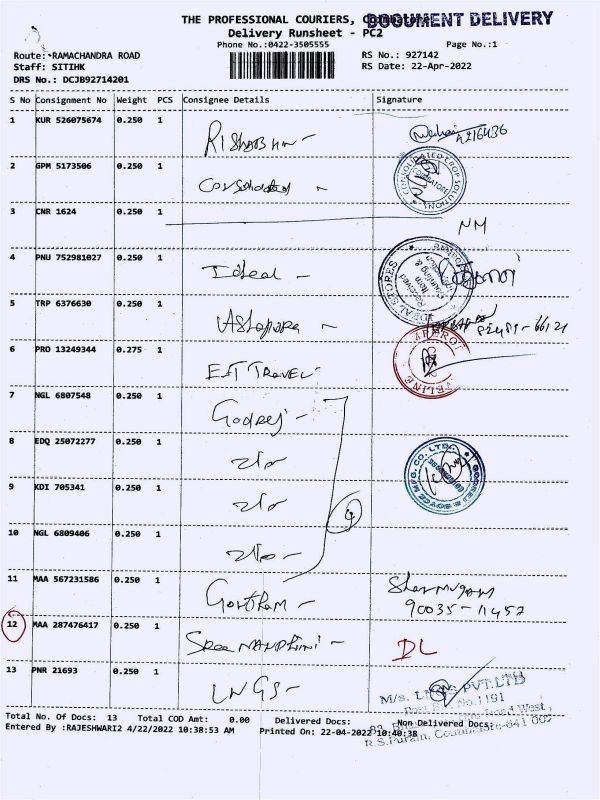 THE PROFESSIONAL COURIERS, Coimbatore
DOCUMENT DELIVERY
Delivery Runsheet - PC2
Phone No.:0422-3505555
Page No.:1
Route: RAMACHANDRA ROAD
RS No.: 927142
Staff: SITIHK
RS Date: 22-Apr-2022
DRS No.: DCJB92714201
S No Consignment No Weight PCS Consignee Details Signature
1 KUR 526075674 0.250 1
2 GPM 5173506 0.250 1 CONSOLIDATED CROP SOLUTIONS COIMBATORE
3 CNR 1624 0.250 1 NM
4 PNU 752981027 0.250 1 Ideal IDEAL STORES Received Item
5 TRP 6376630 0.250 1 Ashapura
6 PRO 13249344 0.275 1 EFT TRAVEL
7 NGL 6807548 0.250 1 Godrej
8 EDQ 25072277 0.250 1
9 KDI 705341 0.250 1
10 NGL 6809406 0.250 1
11 MAA 567231586 0.250 1 Gowtham Shanmugam
90035-11457
12 MAA 287476417 0.250 1 Sree NANDHINI DL
13 PNR 21693 0.250 1 LNGS
M/s. PVT.LTD
No.1191
Road West,
R.S.Puram, Coimbatore-641 002
Total No. Of Docs: 13 Total COD Amt: 0.00 Delivered Docs: Non Delivered Docs:
Entered By :RAJESHWARI2 4/22/2022 10:38:53 AM Printed On: 22-04-2022 10:40:38